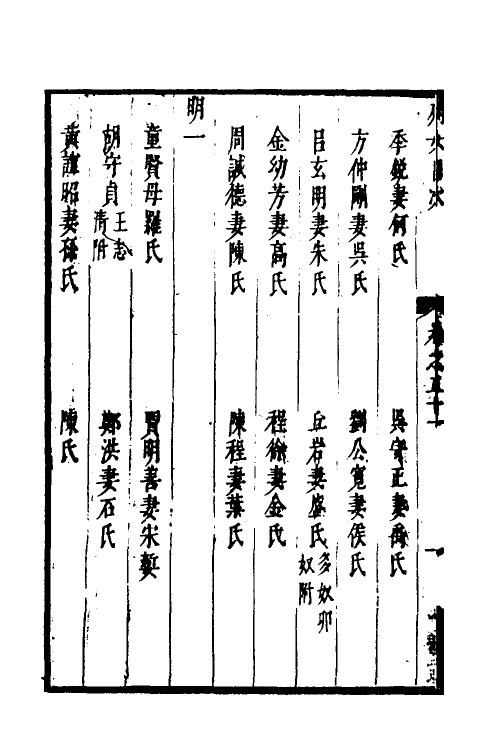 季銳妻何氏
吳守正妻禹氏
方仲剛妻吳氏
劉公寬妻侯氏
呂玄明妻朱氏
丘岩妻盛氏 多奴卯奴附
金幼芳妻高氏
程徐妻金氏
周誠德妻陳氏
陳程妻葉氏
明一
童賢母羅氏
賈明善妻宋㜪
胡守貞 王志清附
鄭洪妻石氏
黃諲昭妻孫氏
陳氏